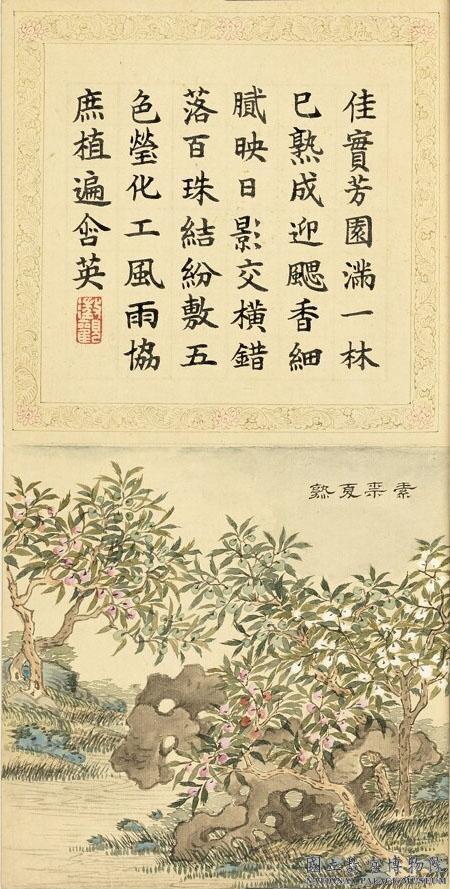 佳實芳園滿一林
已熟成迎颸香細
膩映日影交橫錯
落百珠結紛敷五
色瑩化工風雨協
庶植遍含英
素柰夏熟
國立故宮博物院
NATIONAL PALACE MUSEUM